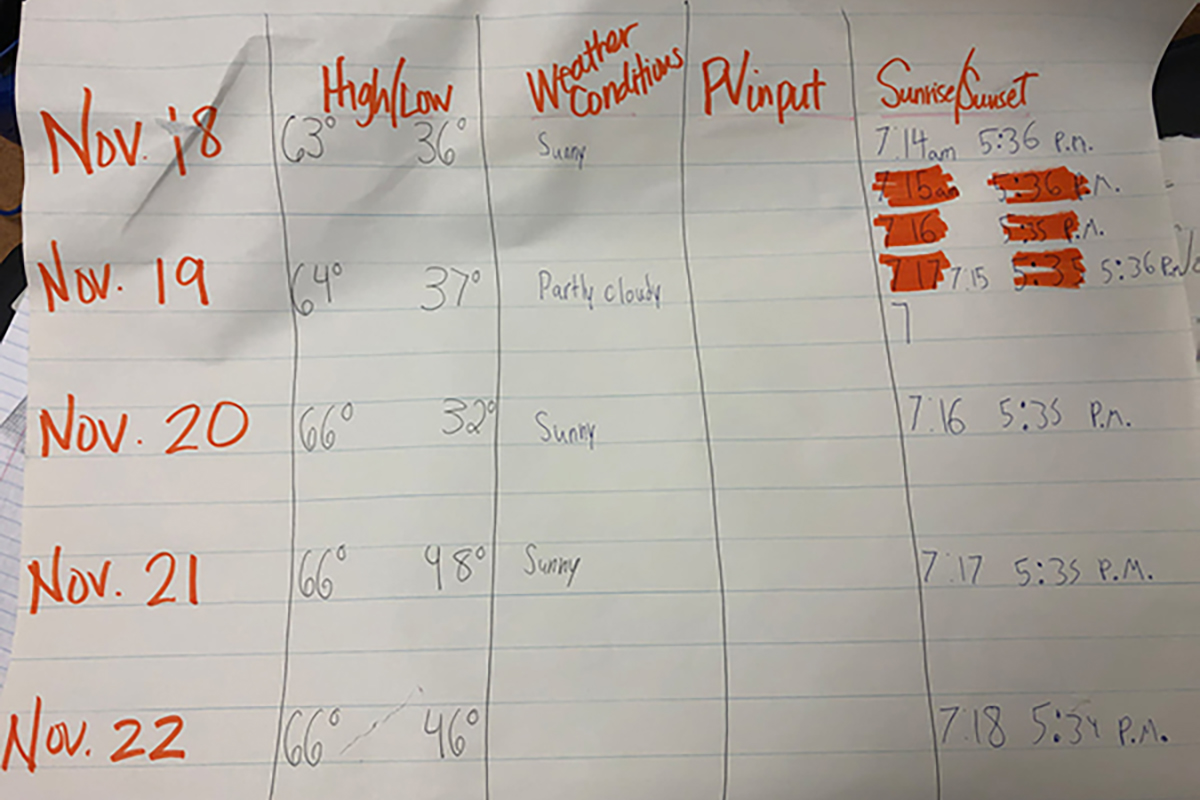 High/Low Weather Conditions PV input Sunrise/Sunset
Nov. 18 63° 36° Sunny 7.14am 5:36 P.M.
7 15am 5:36 P.M.
7 16 5:35 P.M.
Nov. 19 64° 37° Partly cloudy 7 17 7.15 5:35 5:36 P.M
7
Nov. 20 66° 32° Sunny 7:16 5:35 P.M.
Nov. 21 66° 48° Sunny 7:17 5:35 P.M.
Nov. 22 66° 46° 7:18 5:34 P.M.